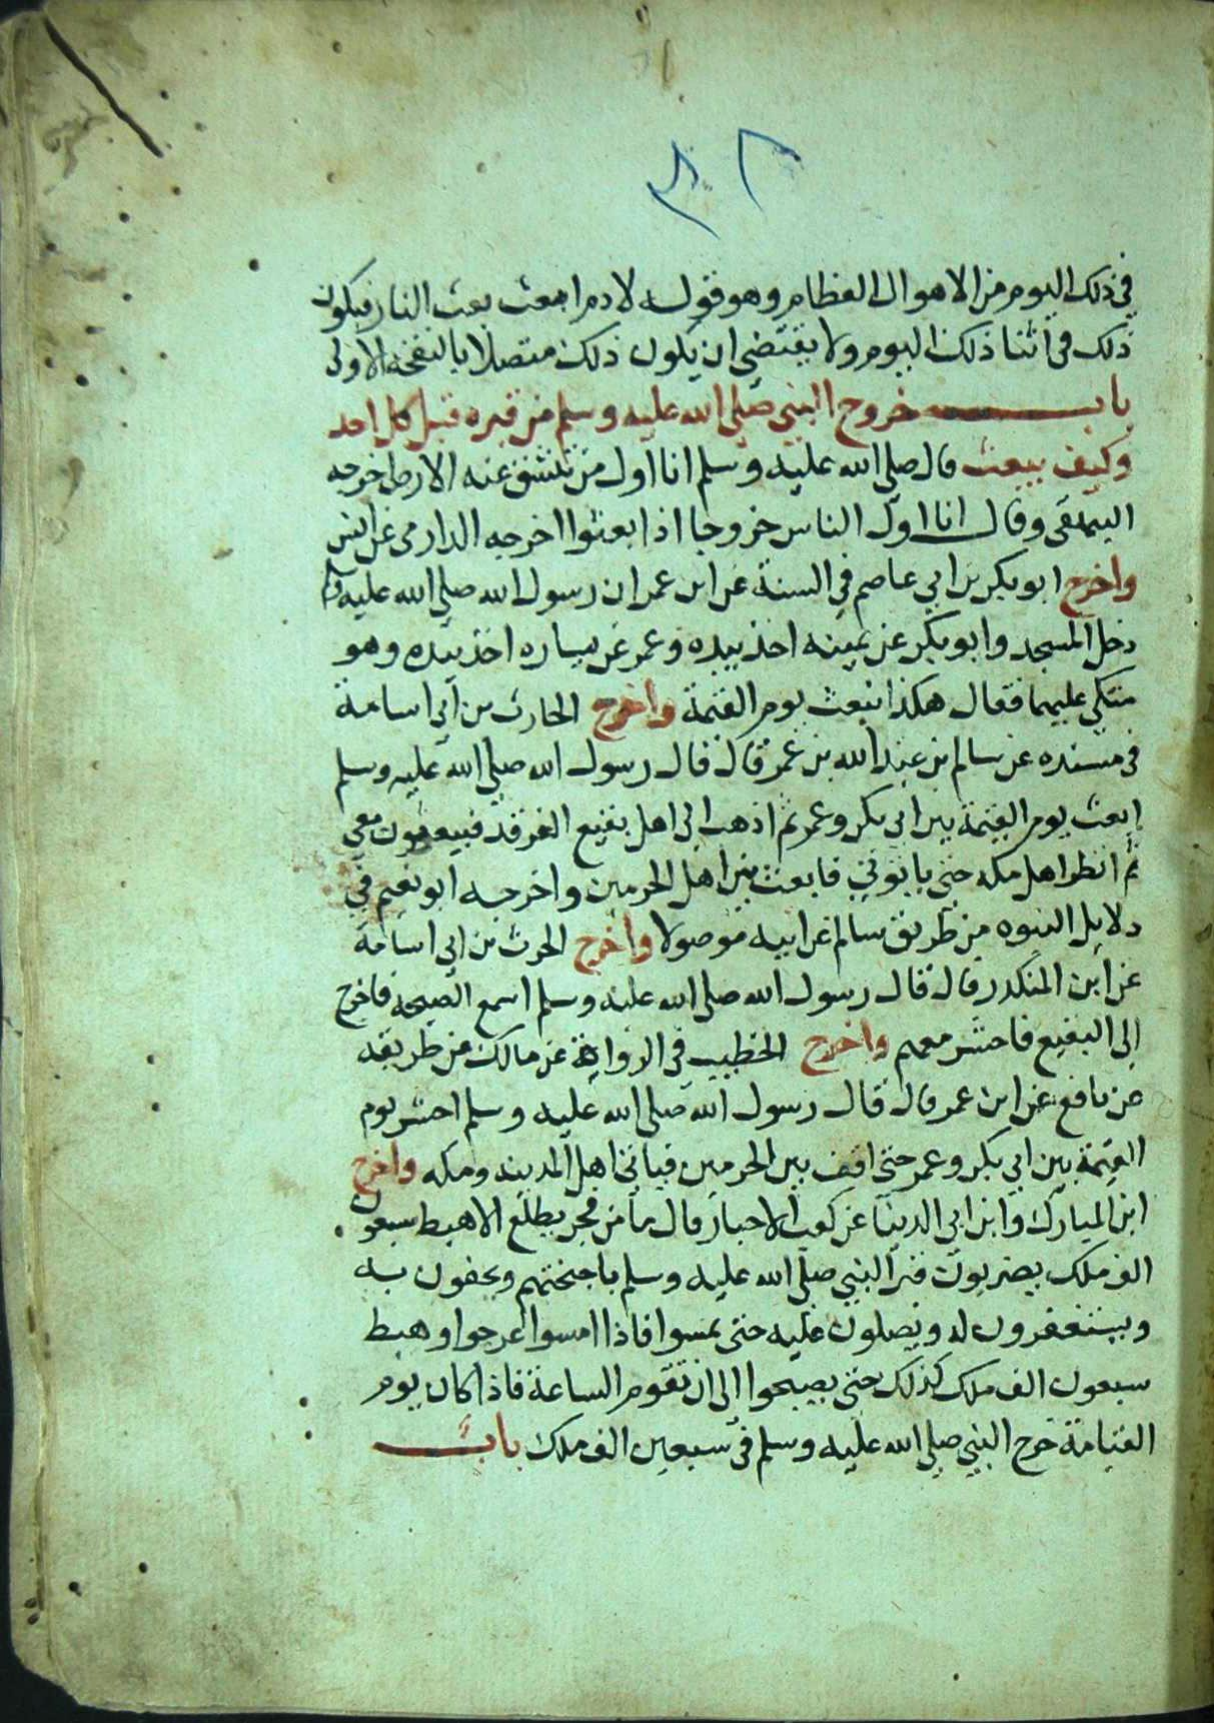 في ذلك اليوم من الاهوال العظام وهو قوله لادم ابعث بعث النار فيكون
ذلك في اثنا ذلك اليوم ولا يقتضي ان يكون ذلك متصلا بالنفخة الاولى
باب خروج النبي صلى الله عليه وسلم من قبره قبل كل احد
وكيف يبعث قال صلى الله عليه وسلم انا اول من تنشق عنه الارض اخرجه
البيهقي وقال انا اول الناس خروجا اذا بعثوا اخرجه الدارمي عن انس
واخرج ابو بكر بن ابي عاصم في السنة عن ابن عمر ان رسول الله صلى الله عليه
دخل المسجد وابو بكر عن يمينه اخذ بيده وعمر عن يساره اخذ بيده وهو
متكي عليهما فقال هكذا نبعث يوم القيمة واخرج الحارث بن ابي اسامة
في مسنده عن سالم بن عبد الله بن عمر قال قال رسول الله صلى الله عليه وسلم
ابعث يوم القيمة بين ابي بكر وعمر ثم اذهب الى اهل بقيع الغرقد فيبعثون معي
ثم انظر اهل مكه حتى ياتوني فابعث بين اهل الحرمين واخرجه ابو نعيم في
دلايل النبوه من طريق سالم عن ابيه موصولا واخرج الحرث بن ابي اسامة
عن ابن المنكدر قال قال رسول الله صلى الله عليه وسلم اسمع الصيحه فاخرج
الى البقيع فاحشر معهم واخرج الخطيب في الرواة عن مالك من طريقه
عن نافع عن ابن عمر قال قال رسول الله صلى الله عليه وسلم احشر يوم
القيمة بين ابي بكر وعمر حتى اقف بين الحرمين فياتي اهل المدينه ومكه واخرج
ابن المبارك وابن ابي الدنيا عن كعب الاحبار قال ما من فجر يطلع الا هبط سبعون
الف ملك يضربون قبر النبي صلى الله عليه وسلم باجنحتهم ويحفون به
ويستغفرون له ويصلون عليه حتى يمسوا فاذا امسوا عرجوا وهبط
سبعون الف ملك كذلك حتى يصبحوا الى ان تقوم الساعة فاذا كان يوم
القيامة خرج النبي صلى الله عليه وسلم في سبعين الف ملك باب